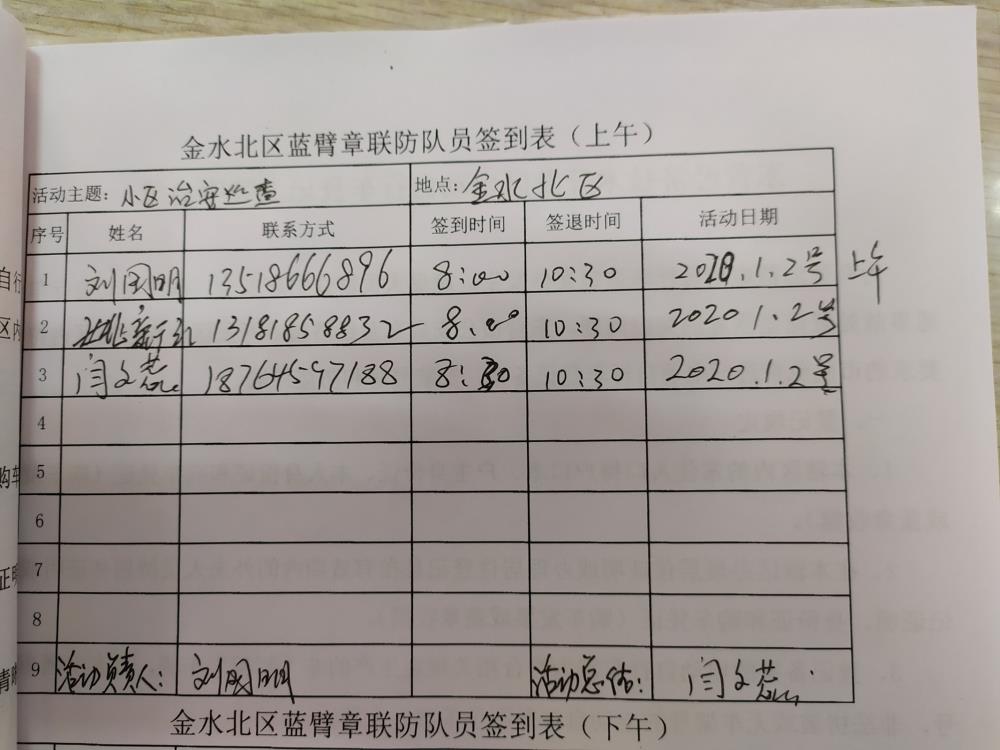 金水北区蓝臂章联防队员签到表（上午）
活动主题：小区治安巡查 地点：金水北区
序号 姓名 联系方式 签到时间 签退时间 活动日期
1 刘国明 13518666896 8:00 10:30 2020.1.2号 上午
2 13181858832 8:00 10:30 2020 1.2号
3 闫文蕊 18764597188 8:30 10:30 2020.1.2号
4
5
6
7
8
9 活动负责人： 刘国明 活动总结： 闫文蕊
金水北区蓝臂章联防队员签到表（下午）
自行
区内
购车
证明